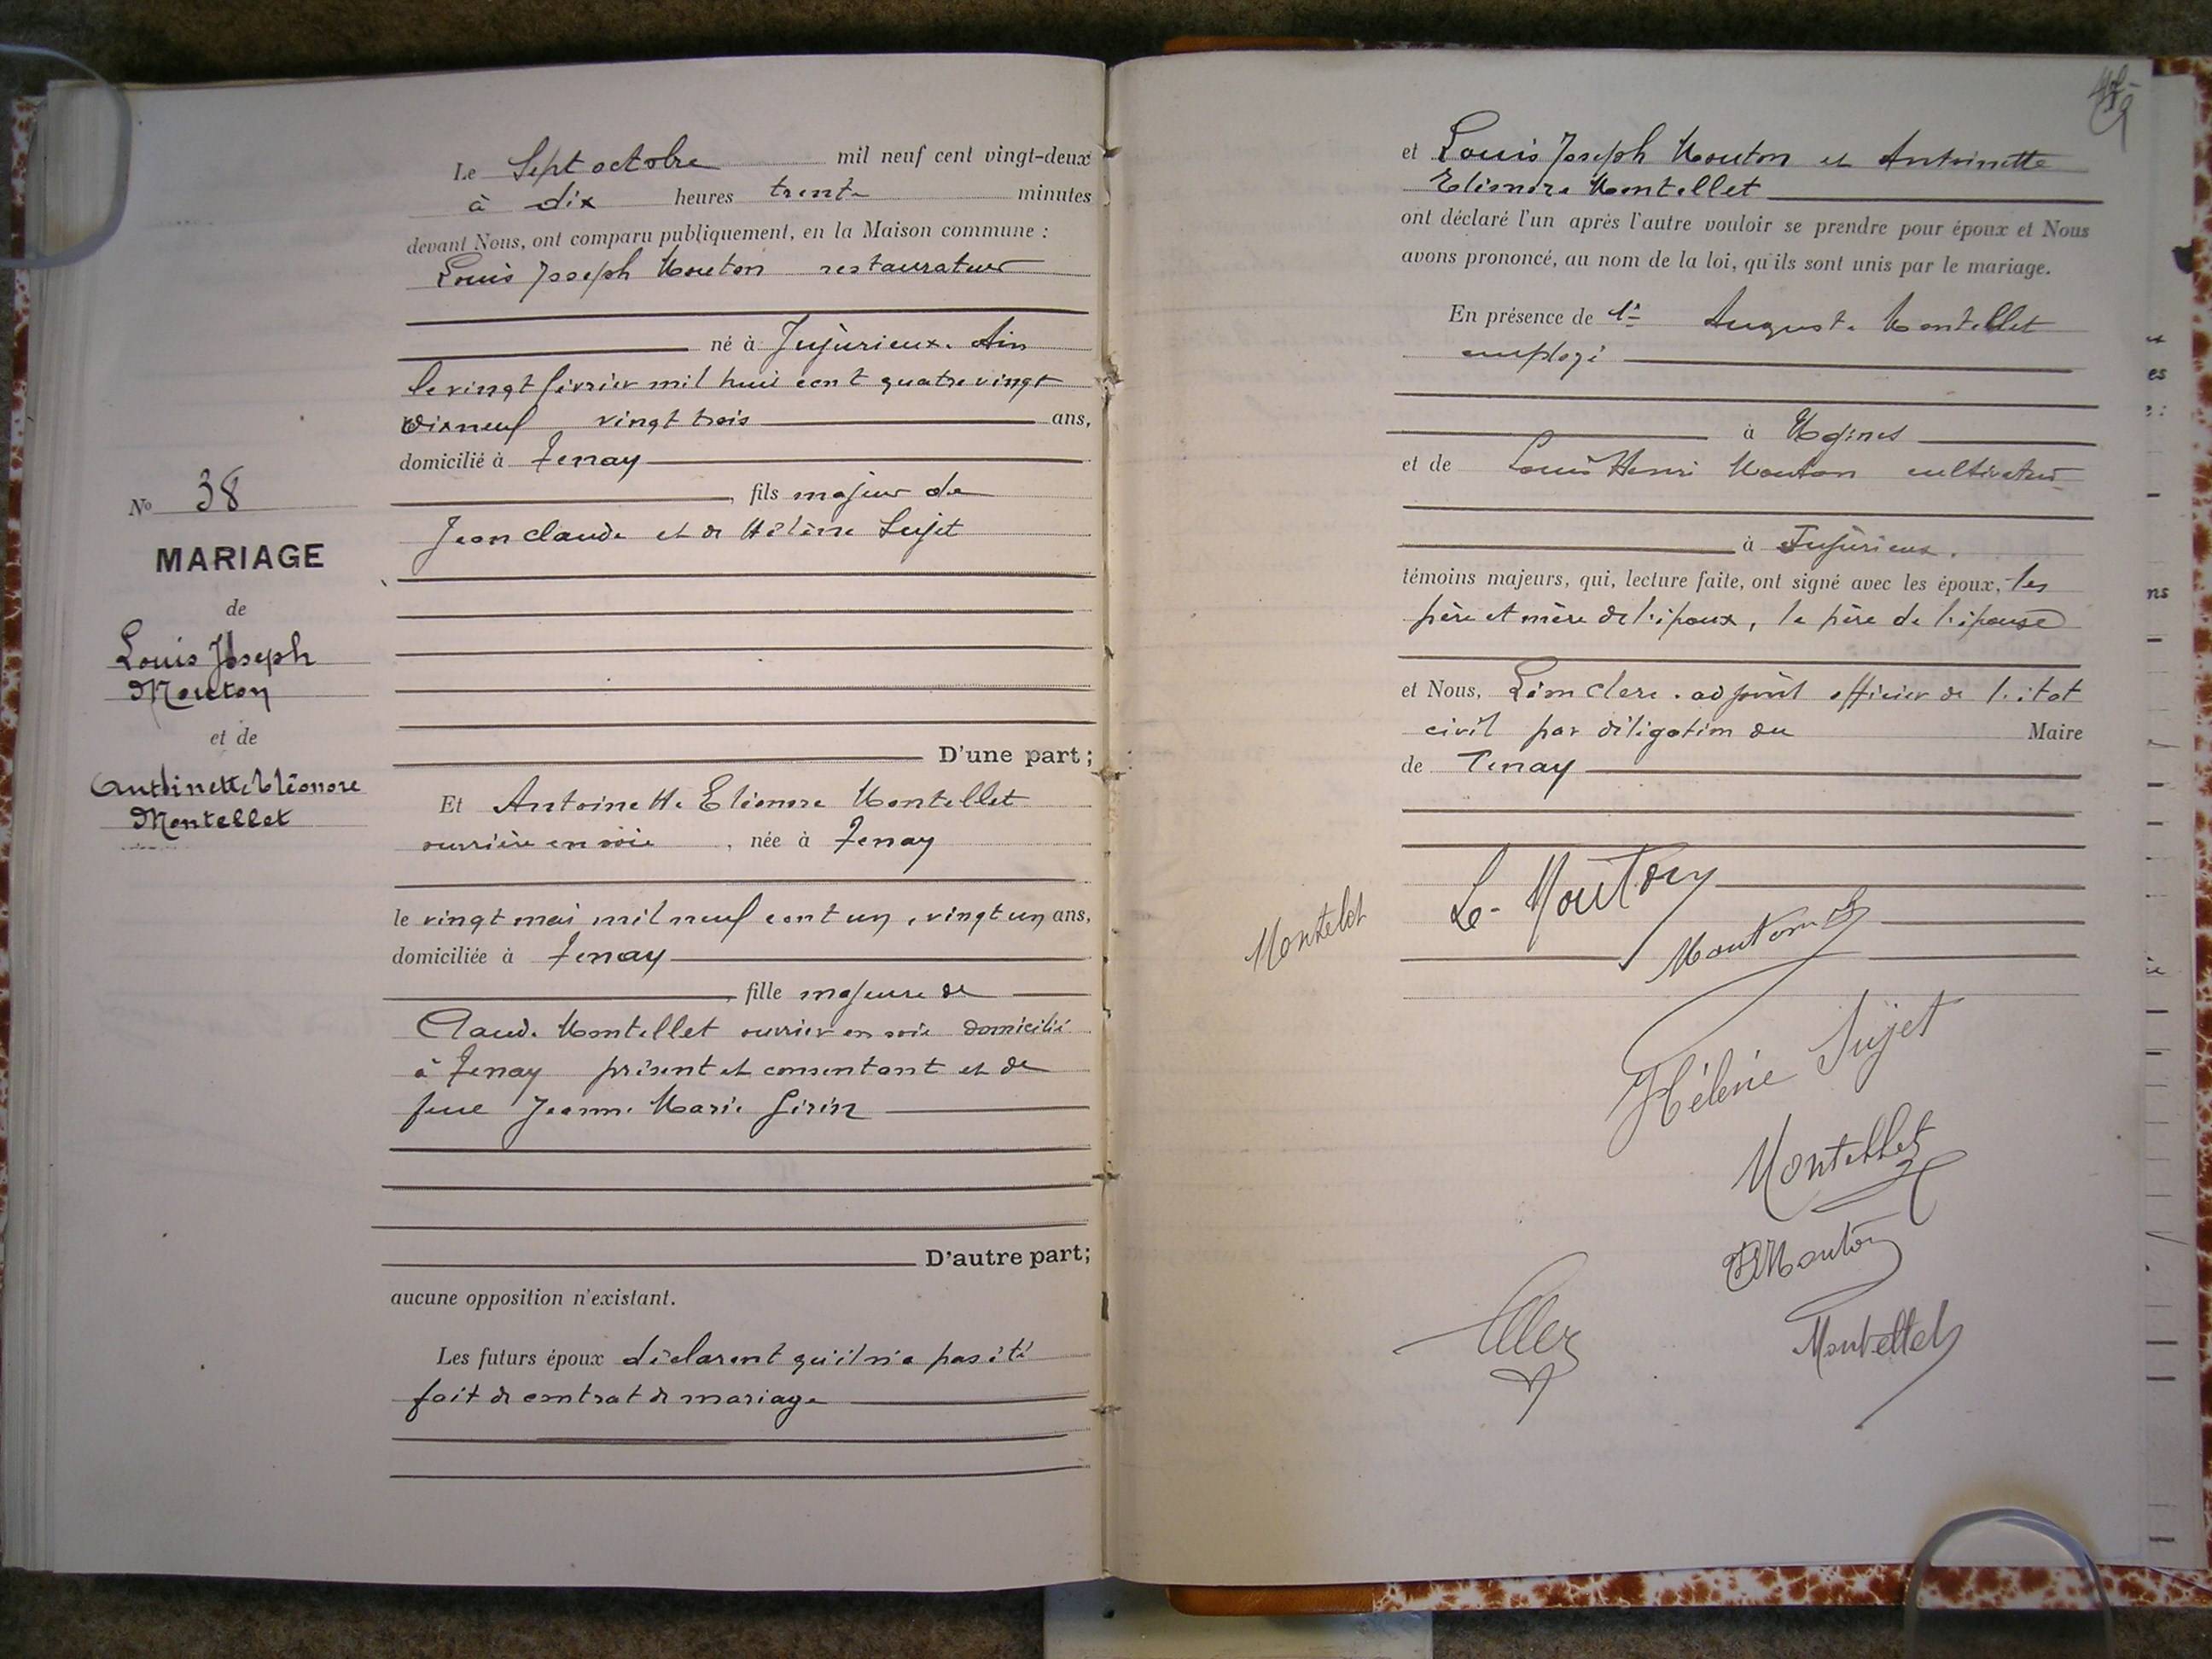 N° 38
MARIAGE
de
Louis Joseph
Mouton
et de
Antoinette Eléonore
Montellet
Le Sept octobre mil neuf cent vingt-deux
à dix heures trente minutes
devant Nous, ont comparu publiquement, en la Maison commune :
Louis Joseph Mouton restaurateur
né à Jujurieux. Ain
le vingt février mil huit cent quatre vingt
dixneuf vingt trois ans,
domicilié à Tenay
, fils majeur de
Jean Claude et de Hélène Sujet
D'une part;
Et Antoinette Eléonore Montellet
ouvrière en soie , née à Tenay
le vingt mai mil neuf cent un, vingt un ans,
domiciliée à Tenay
, fille majeure de
Claude Montellet ouvrier en soie domicilié
à Tenay présent et consentant et de
feue Jeanne Marie Girin
D'autre part;
aucune opposition n'existant.
Les futurs époux déclarent qu'il n'a pas été
fait de contrat de mariage
et Louis Joseph Mouton et Antoinette
Eléonore Montellet
ont déclaré l'un après l'autre vouloir se prendre pour époux et Nous
avons prononcé, au nom de la loi, qu'ils sont unis par le mariage.
En présence de 1° Auguste Montellet
employé
à Ugines
et de Louis Henri Mouton cultivateur
à Jujurieux.
témoins majeurs, qui, lecture faite, ont signé avec les époux, les
père et mère de l'époux, le père de l'épouse
et Nous, adjoint officier de l'état
civil par déligation du Maire
de Tenay
Montelet
Le Mouton
Mouton
Hélène Sujet
Montellet
Mouton
Montellet